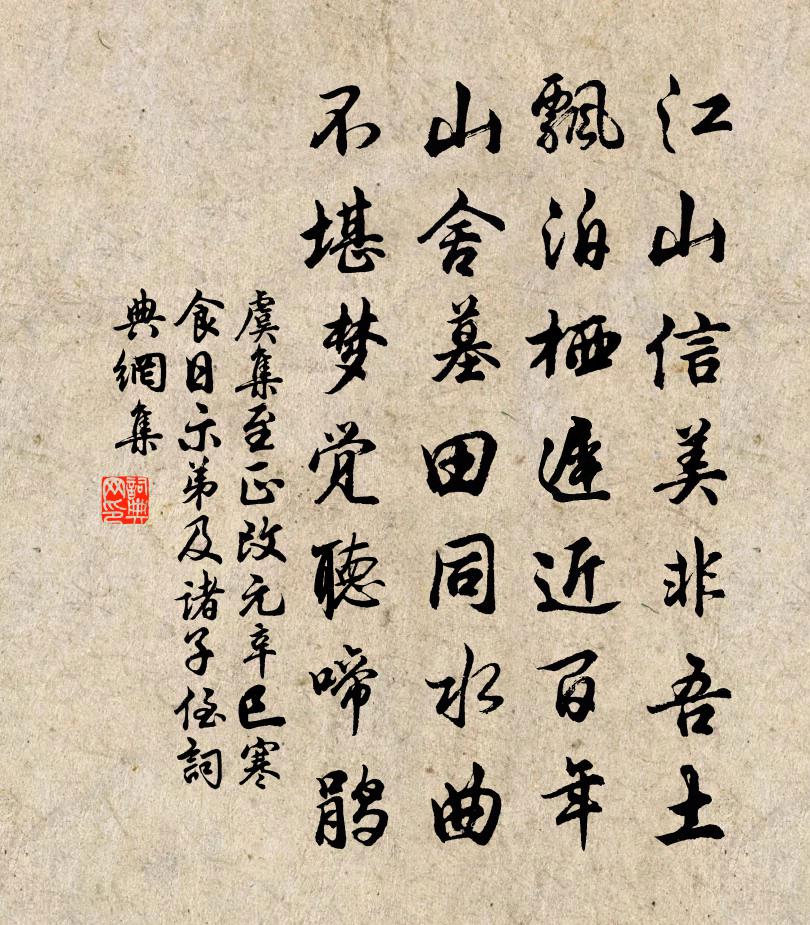 江山信美非吾土
飘泊栖迟近百年
山舍墓田同水曲
不堪梦觉聽啼鹃
虞集至正改元辛巳寒
食日示弟及諸子侄詞
典網集
詞典
网印